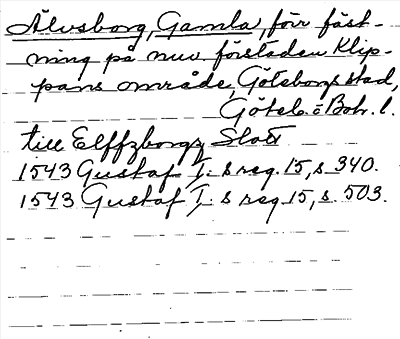 Älvsborg, Gamla, förr fäst-
ning på nuv. förstaden Klip-
pans område, Göteborgs stad,
Göteb. o Boh. l.
till Elffzborgz Slott
1543 Gustaf I:s reg. 15, s 340.
1543 Gustaf I:s reg 15, s. 503.